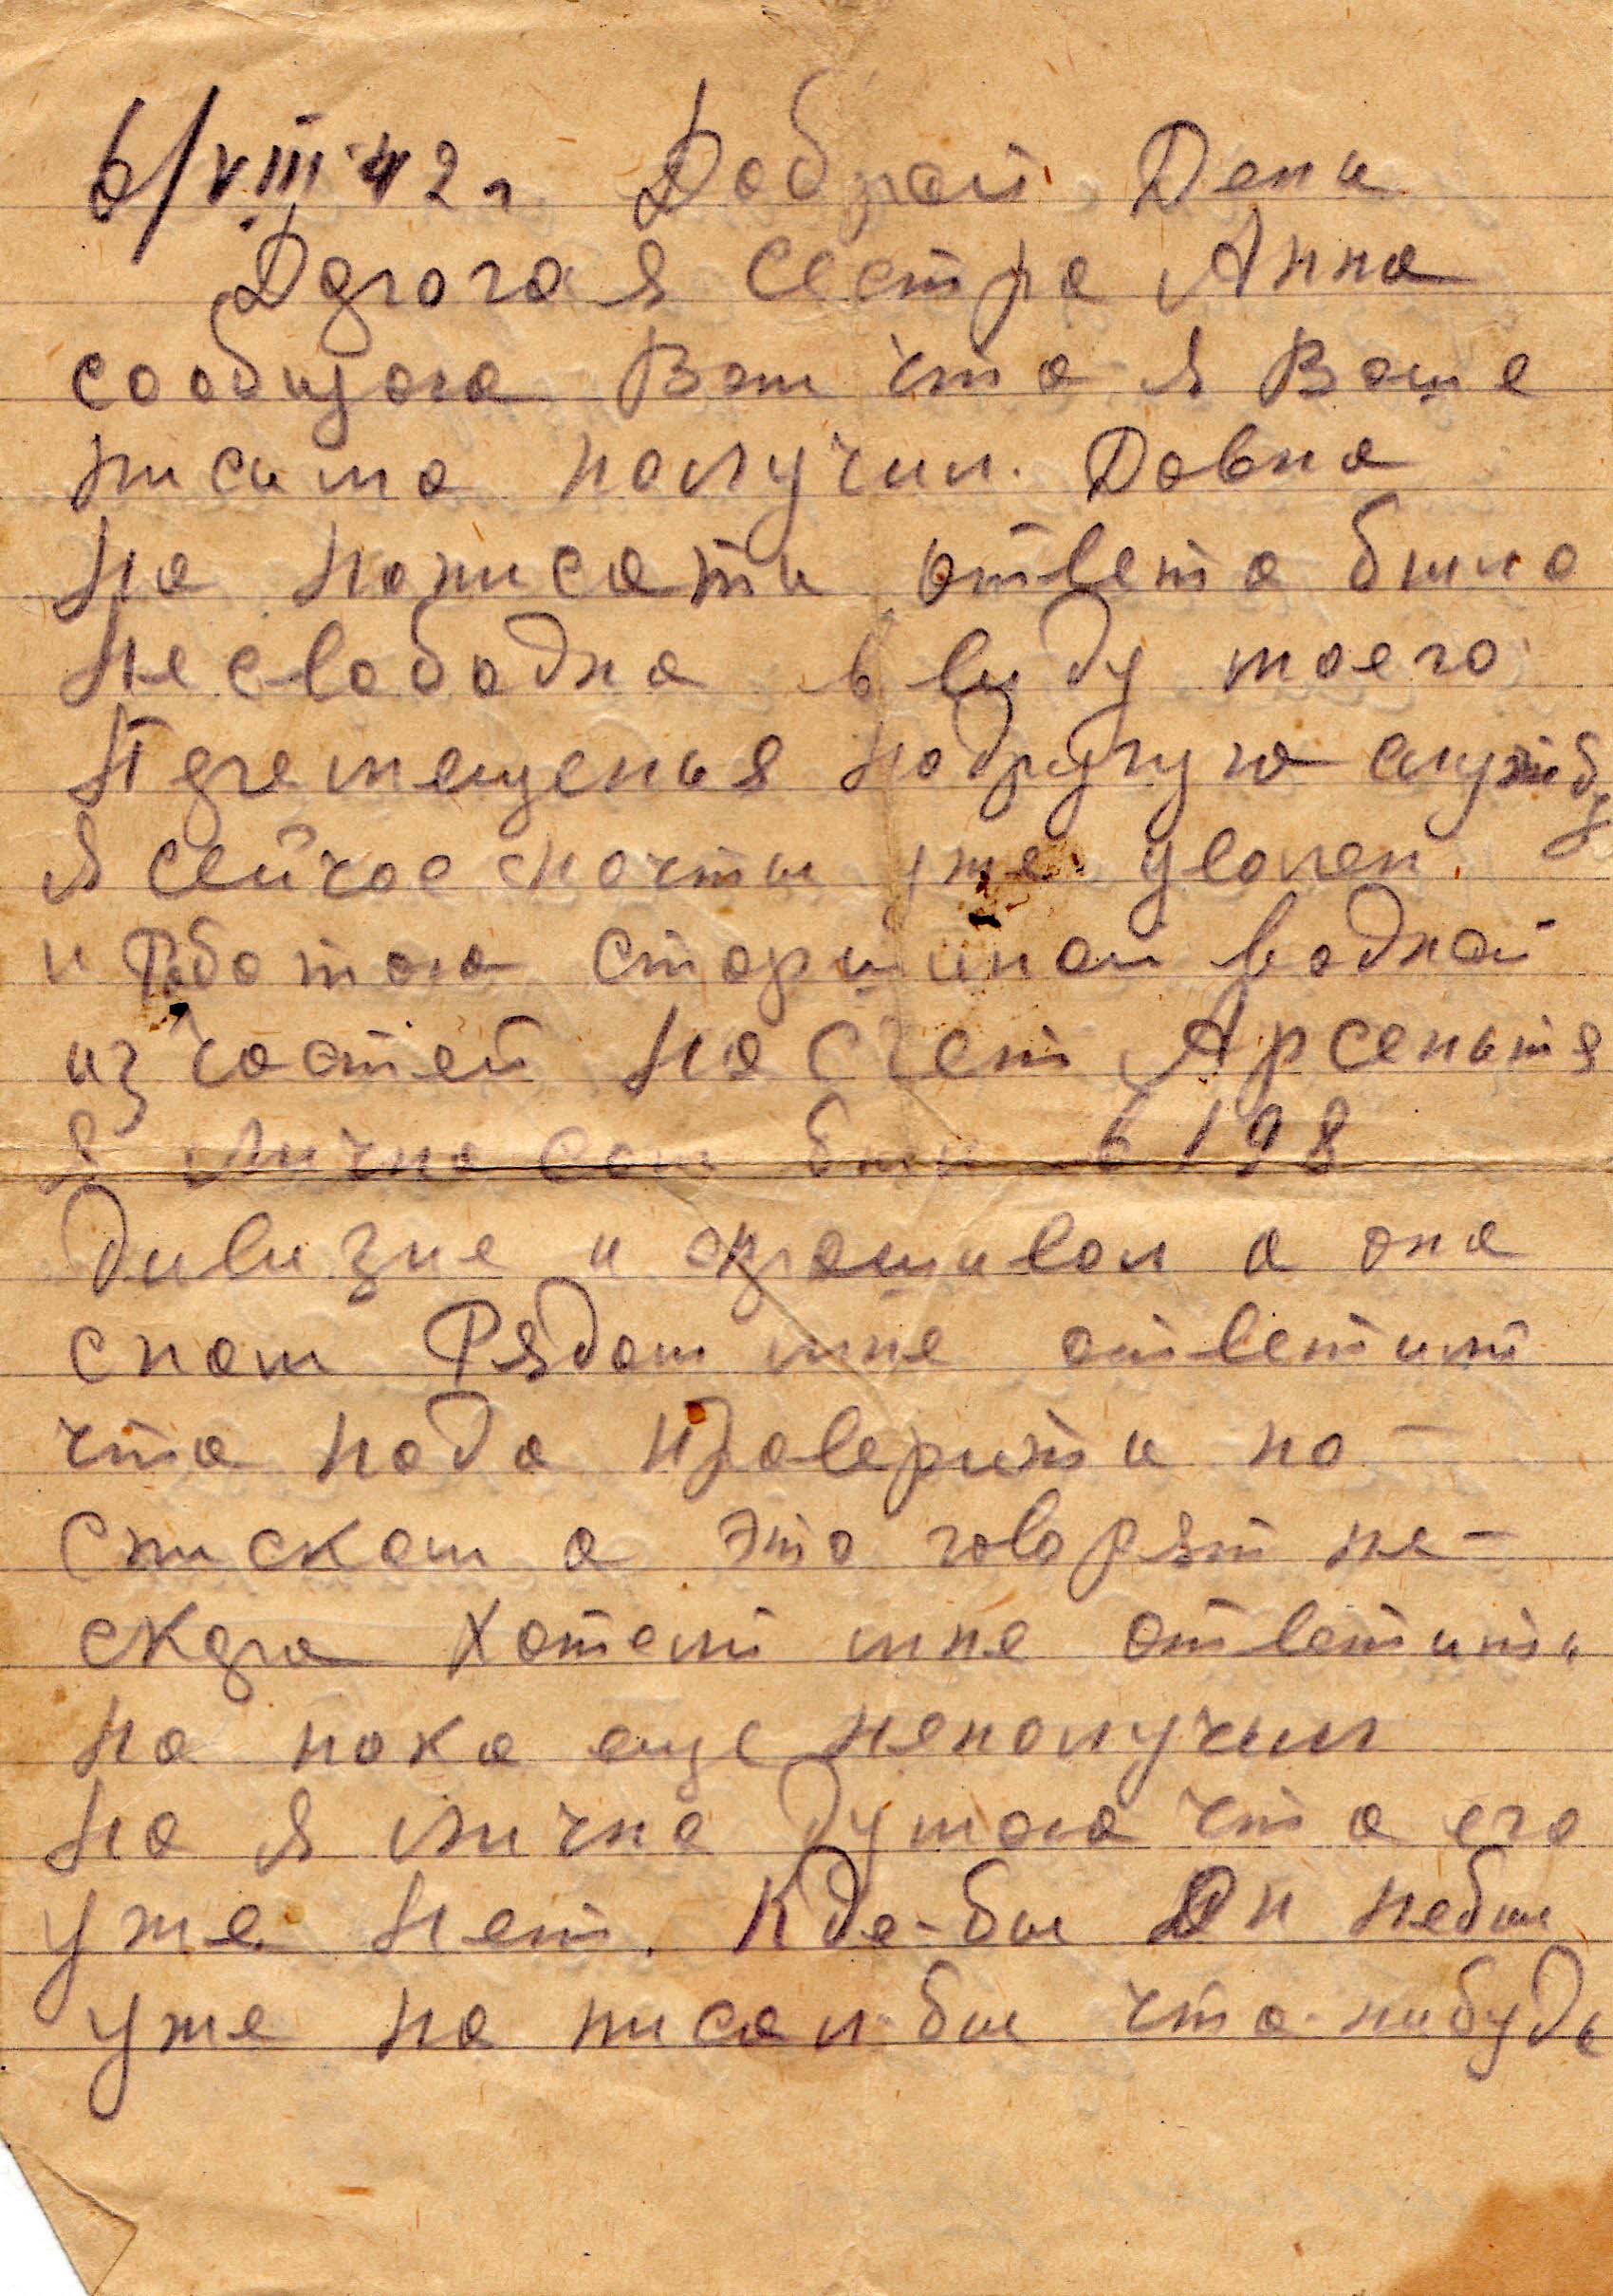 6/VIII 42 г Доброй День
Дорогая сестра Анна
сообщаю Вам что я Ваше
письмо получил. Довно
но написать ответа было
несвободна ввиду моего
перемещенья надругую службу
я сейчас почти уже уволен
и Работаю старшиной водной
из частей на счет Арсенья
я лично сам был в 198
дивизие и спрашивал а она
снам Рядом мне ответили
что нада проверить по
спискам а это говорят не-
скора хотели мне ответить
но пока еще неполучил
но я лично думаю что его
уже нет. Кде-бы Он небыл
уже на писал бы что-нибудь